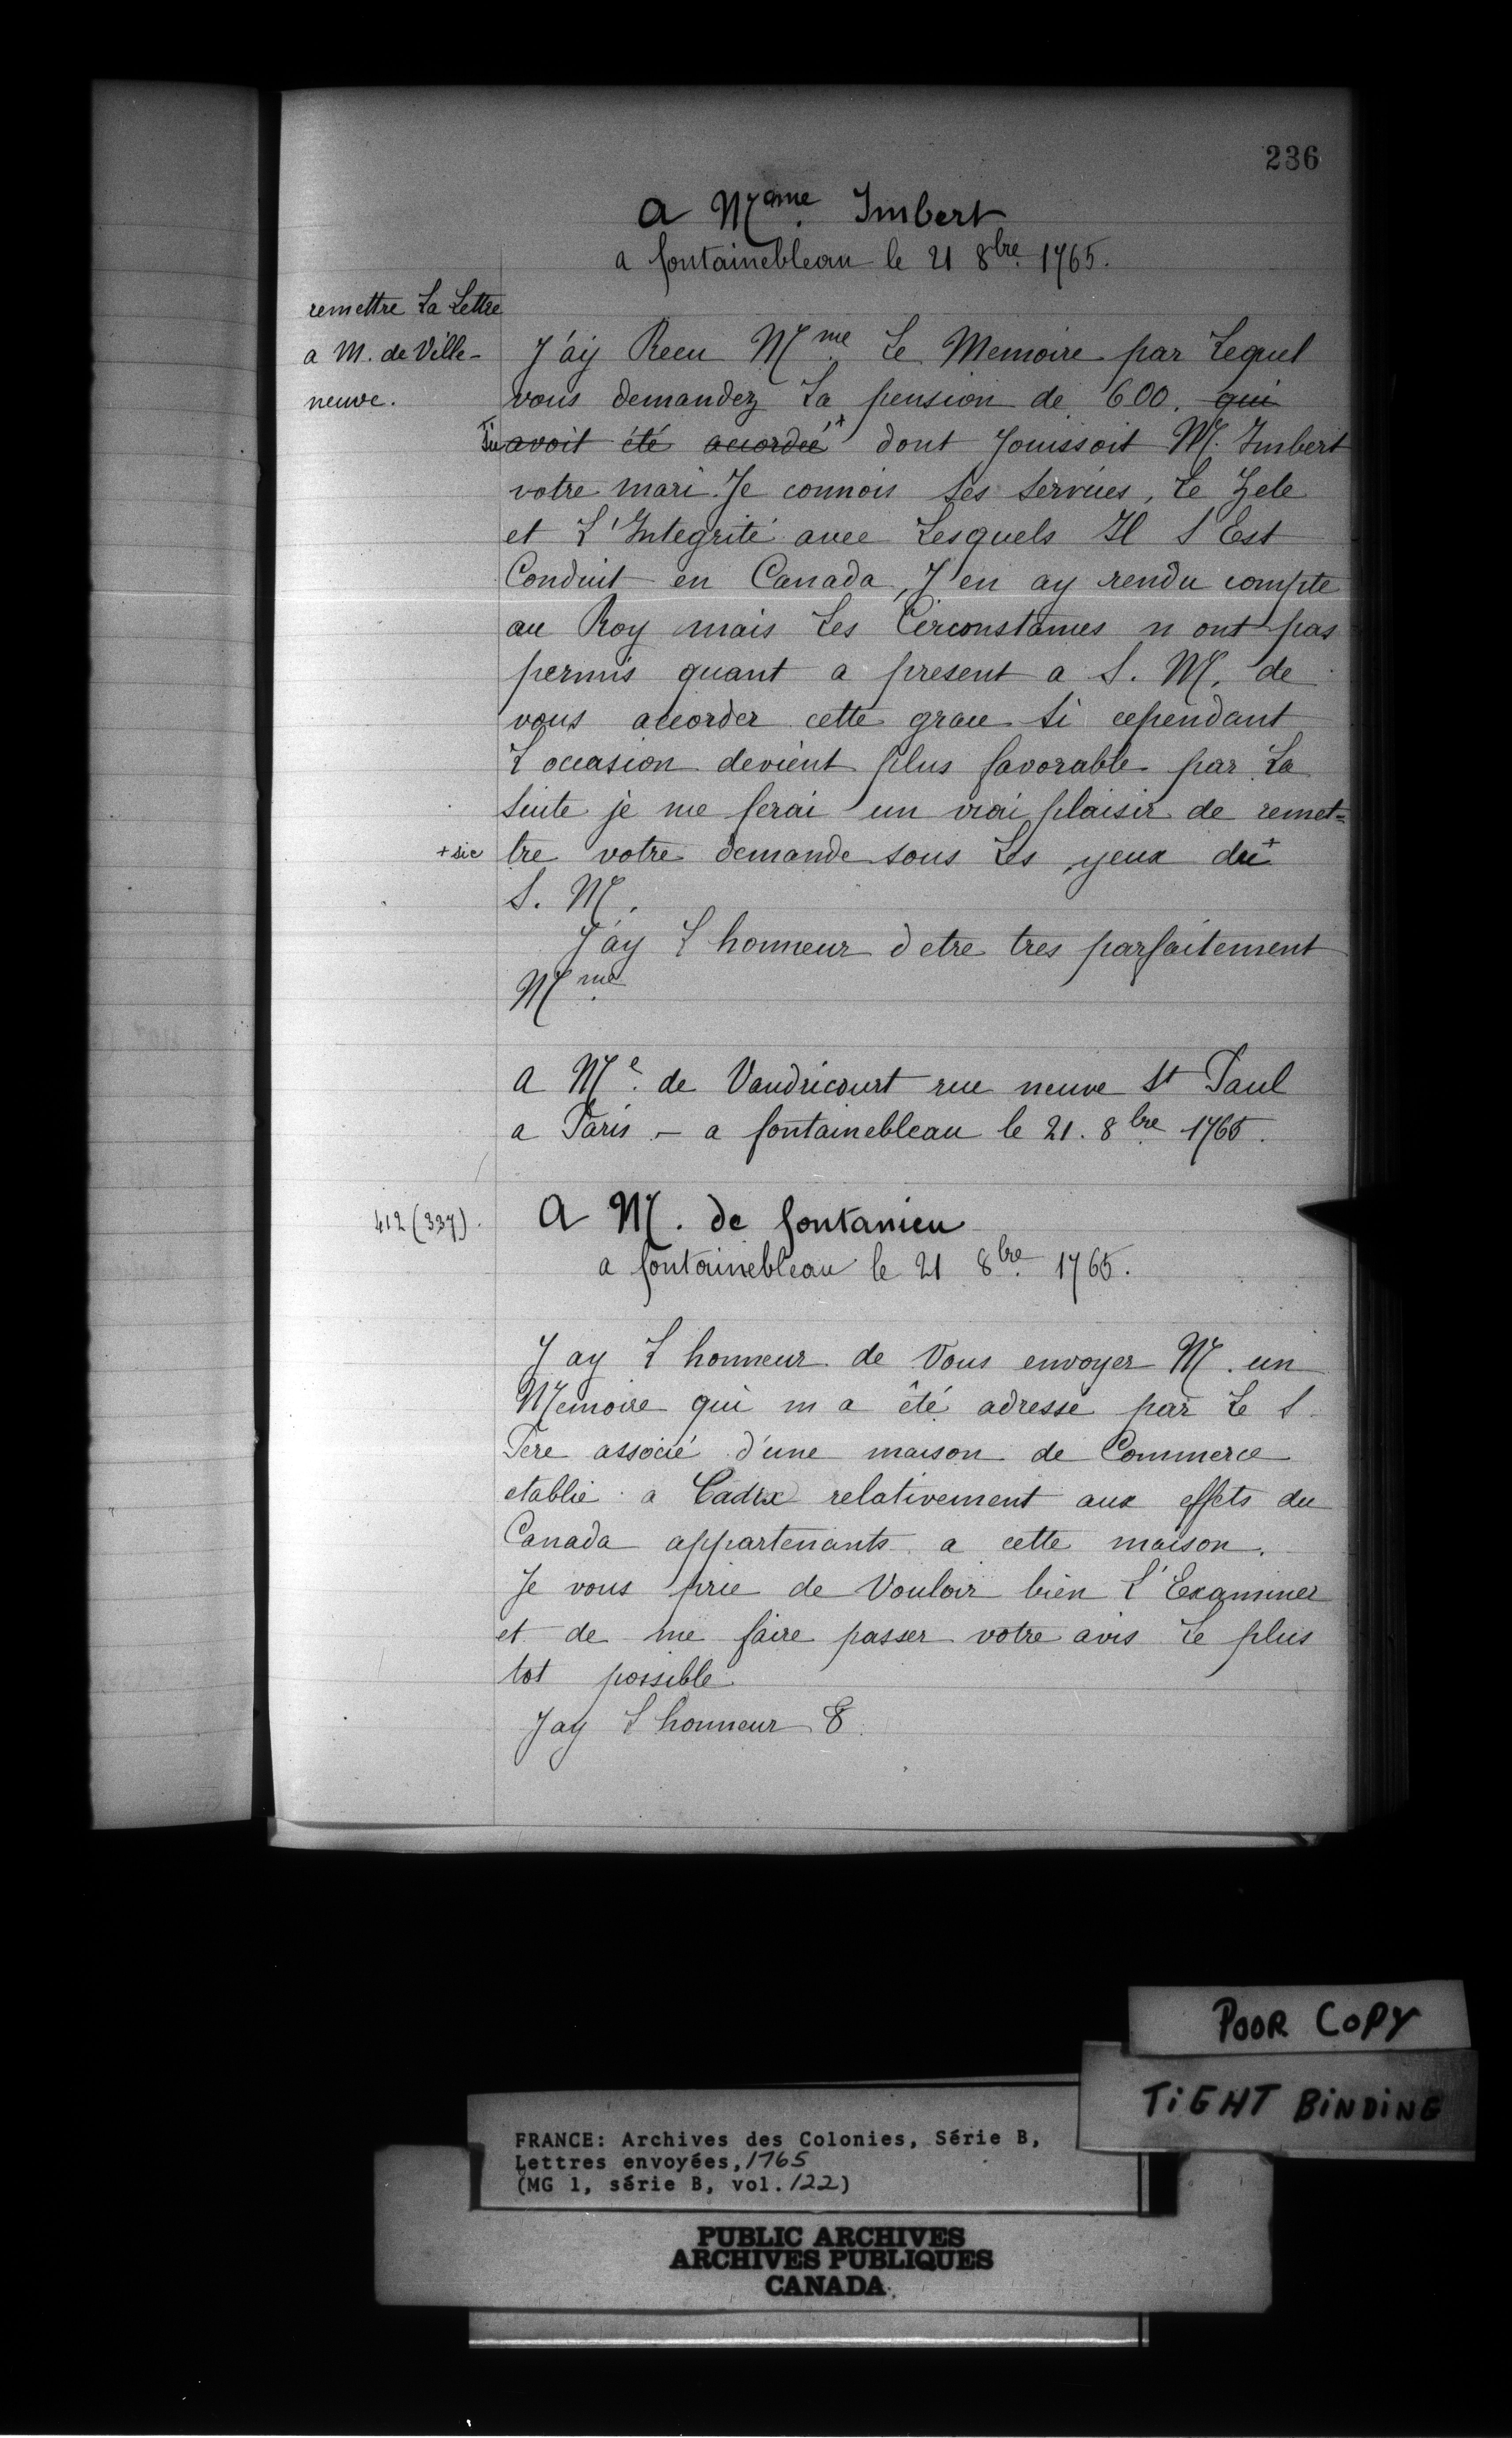 236
a Mame. Imbert
a fontainebleau le 21 8bre. 1765.
remettre La Lettre
a M. de Ville-
neuve.
J'ay Recu Mme. Le Memoire par Lequel
vous demandez La pension de 600. ~~qui~~
~~avoit été accordée~~+ dont Jouissoit M. Imbert
votre mari. Je connois Ses Services, Le Zele
et L'Integrité avec Lesquels Il S'Est
Conduit en Canada, J'en ay rendu compte
au Roy mais Les Circonstances n ont pas
permis quant a present a S. M. de
vous accorder cette grace Si cependant
L occasion devient plus favorable par La
Suite je me ferai un vrai plaisir de remet=
+ sic
tre votre demande sous Les yeux du+
S. M.
J'ay L honneur d etre tres parfaitement
Mme.
a Me. de Vaudricourt rue neuve St Paul
a Paris. - a fontainebleau le 21. 8bre 1765.
412 (337).
A M. de fontanieu
a fontainebleau le 21 8bre. 1765.
J ay L honneur de Vous envoyer M. un
Memoire qui m a êté adressé par Le S.
Pere associé d'une maison de Commerce
etablie a Cadix relativement aux effets du
Canada appartenants a cette maison.
Je vous prie de Vouloir bien L'Examiner
et de me faire passer votre avis Le plus
tot possible
Jay L honneur &.
POOR COPY
TIGHT BINDING
FRANCE: Archives des Colonies, Série B,
Lettres envoyées, 1765
(MG 1, série B, vol. 122)
PUBLIC ARCHIVES
ARCHIVES PUBLIQUES
CANADA